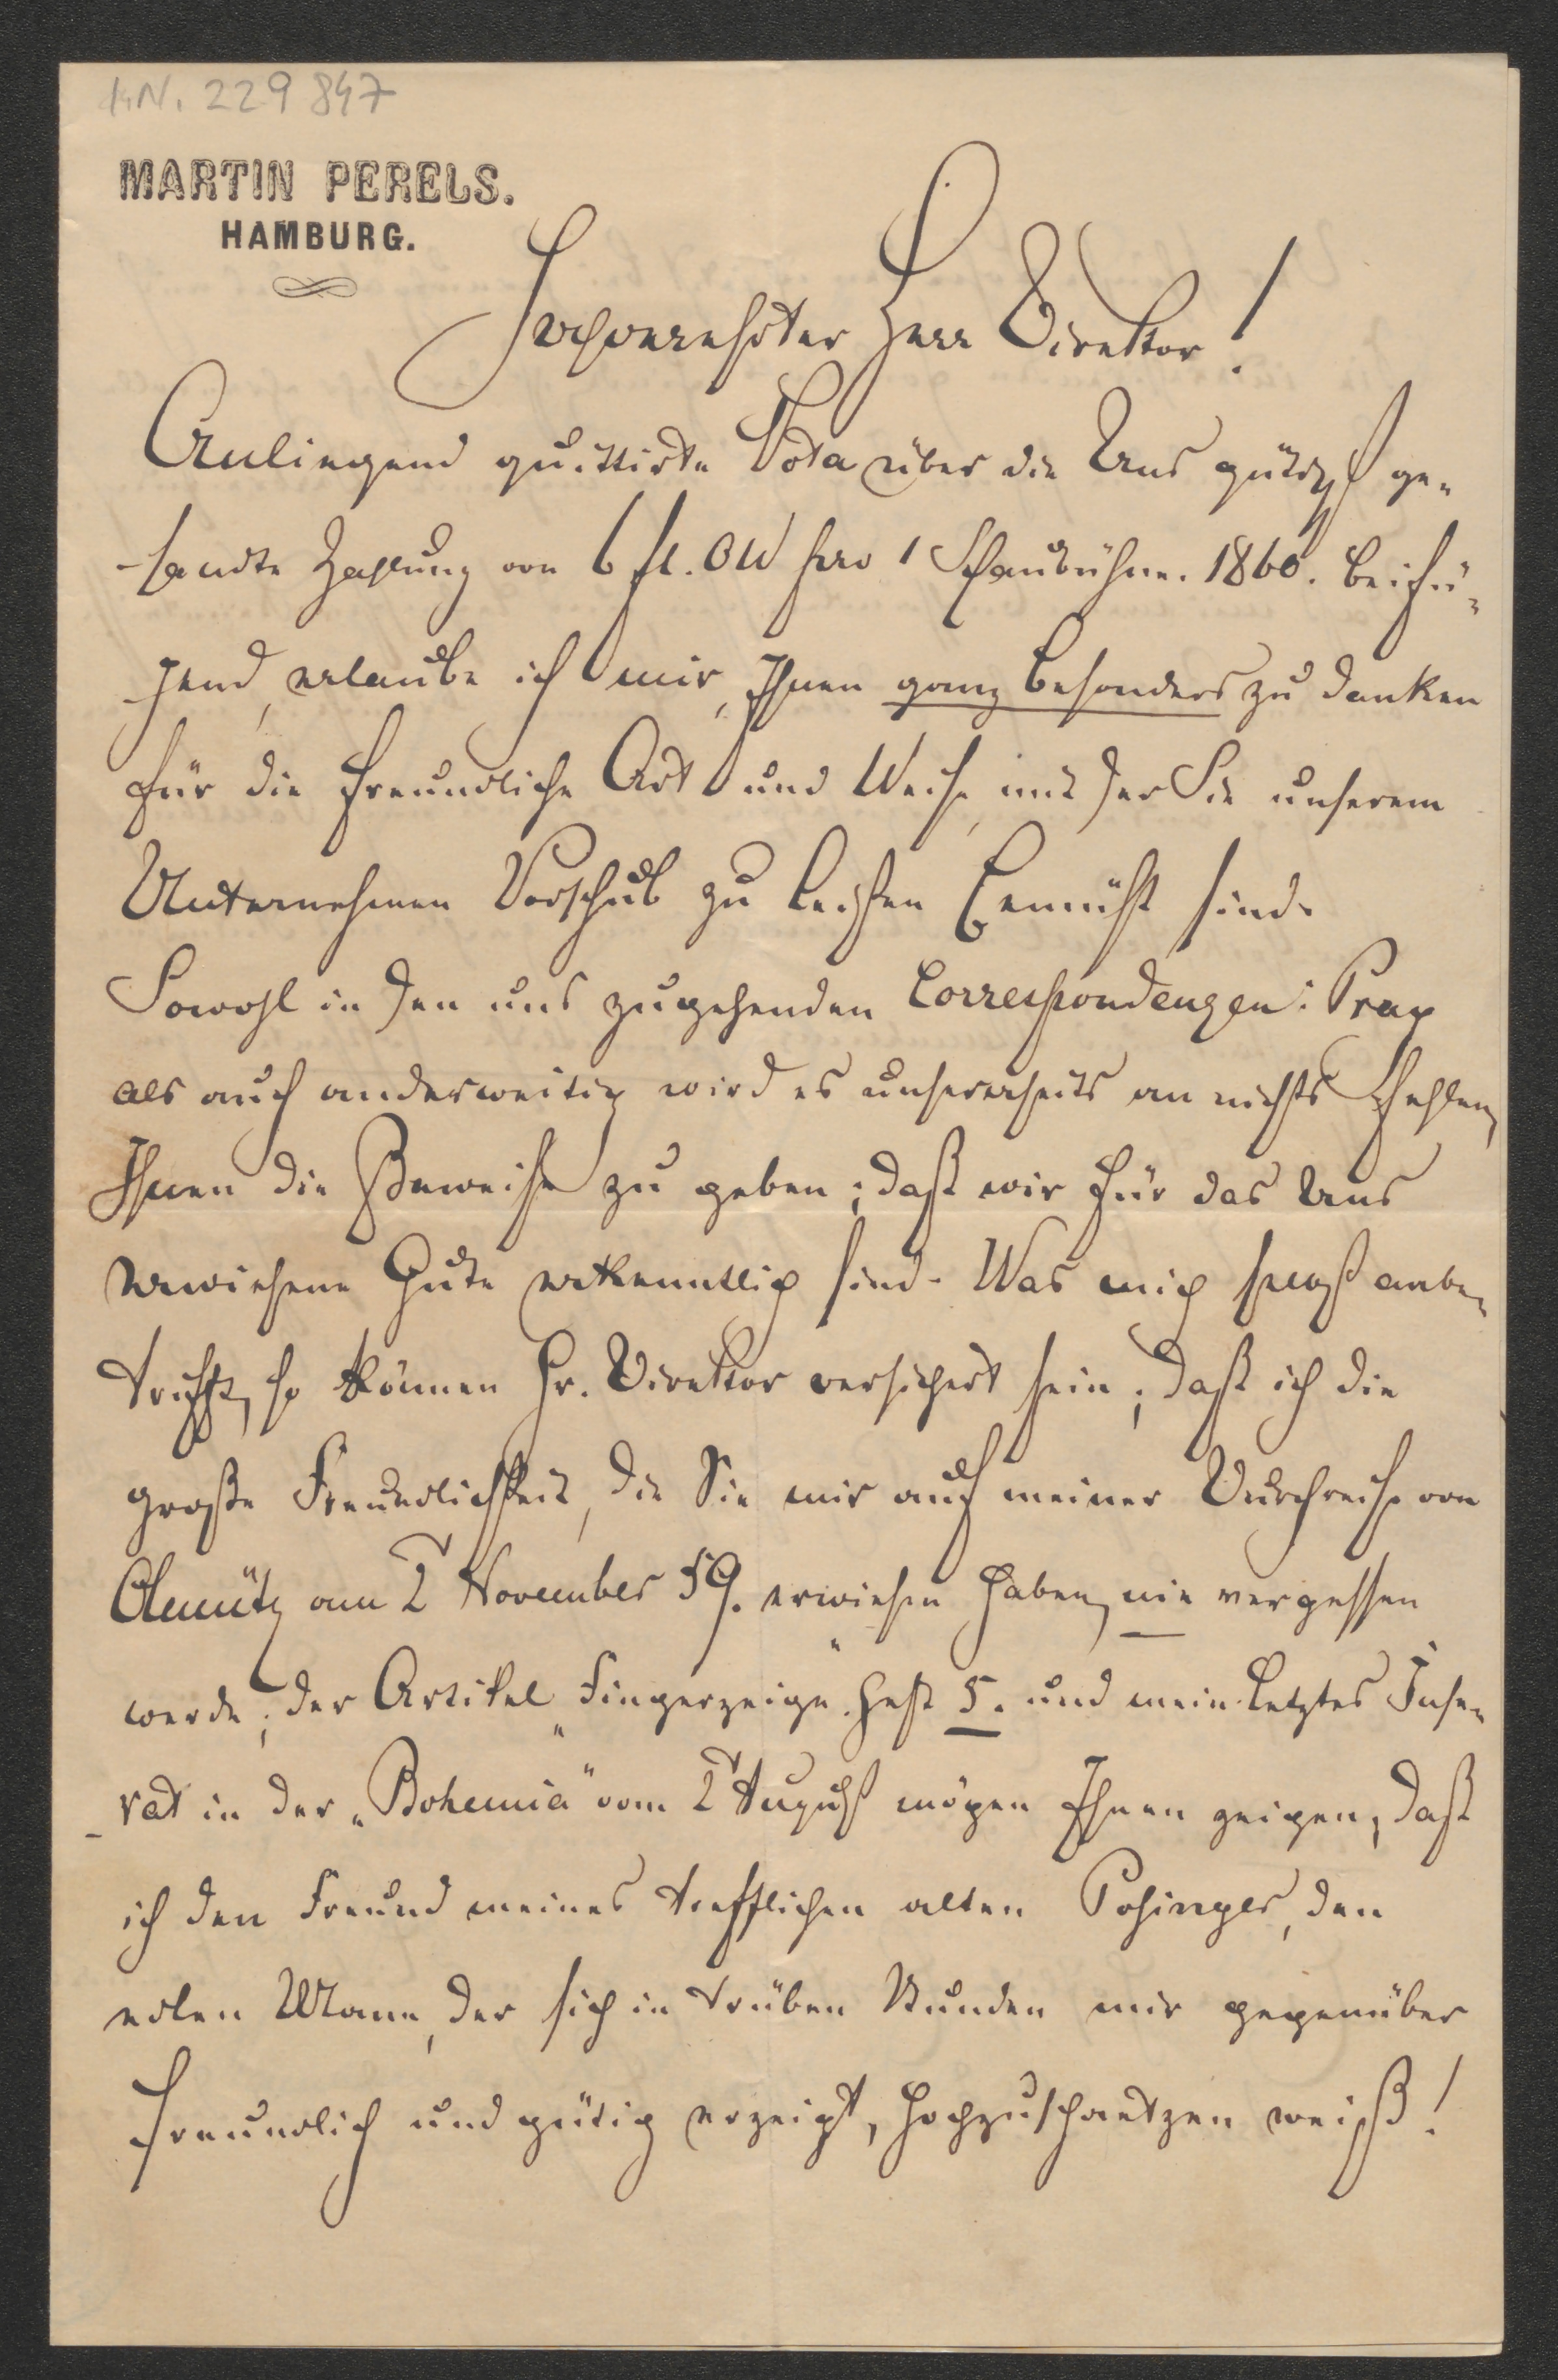 I. N. 229 847
MARTIN PERELS.
HAMBURG.
Hochverehrter Herr Direktor!
Anliegend quittirte Nota über die Uns gütigst ge-
sandte Zahlung von 6 fl. ÖW pro 1 Schaubühne. 1860. beifü-
gend, erlaube ich mir, Ihnen ganz besonders zu danken
für die freundliche Art und Weise, mit der Sie unserem
Unternehmen Vorschub zu leisten bemüht sind.
Sowohl in den uns zugehenden Correspondenzen: Prag
als auch anderweitig wird es unsererseits an nichts fehlen,
Ihnen die Beweise zu geben; daß wir für das Uns
erwiesene Gute erkenntlich sind. Was mich selbst anbe-
trifft, so können Hr. Direktor versichert sein; daß ich die
große Freundlichkeit, die Sie mir auf meiner Durchreise von
Olmütz am 2 November 59. erwiesen haben, nie vergessen
werde; der Artikel „Fingerzeige" Heft 5. und mein letztes Inse-
rat in der „Bohemia" vom 2 August mögen Ihnen zeigen, daß
ich den Freund meines trefflichen alten Posinger, den
edlen Mann, der sich in trüben Stunden mir gegenüber
freundlich und gütig erzeigt, hochzuschaetzen weiß!